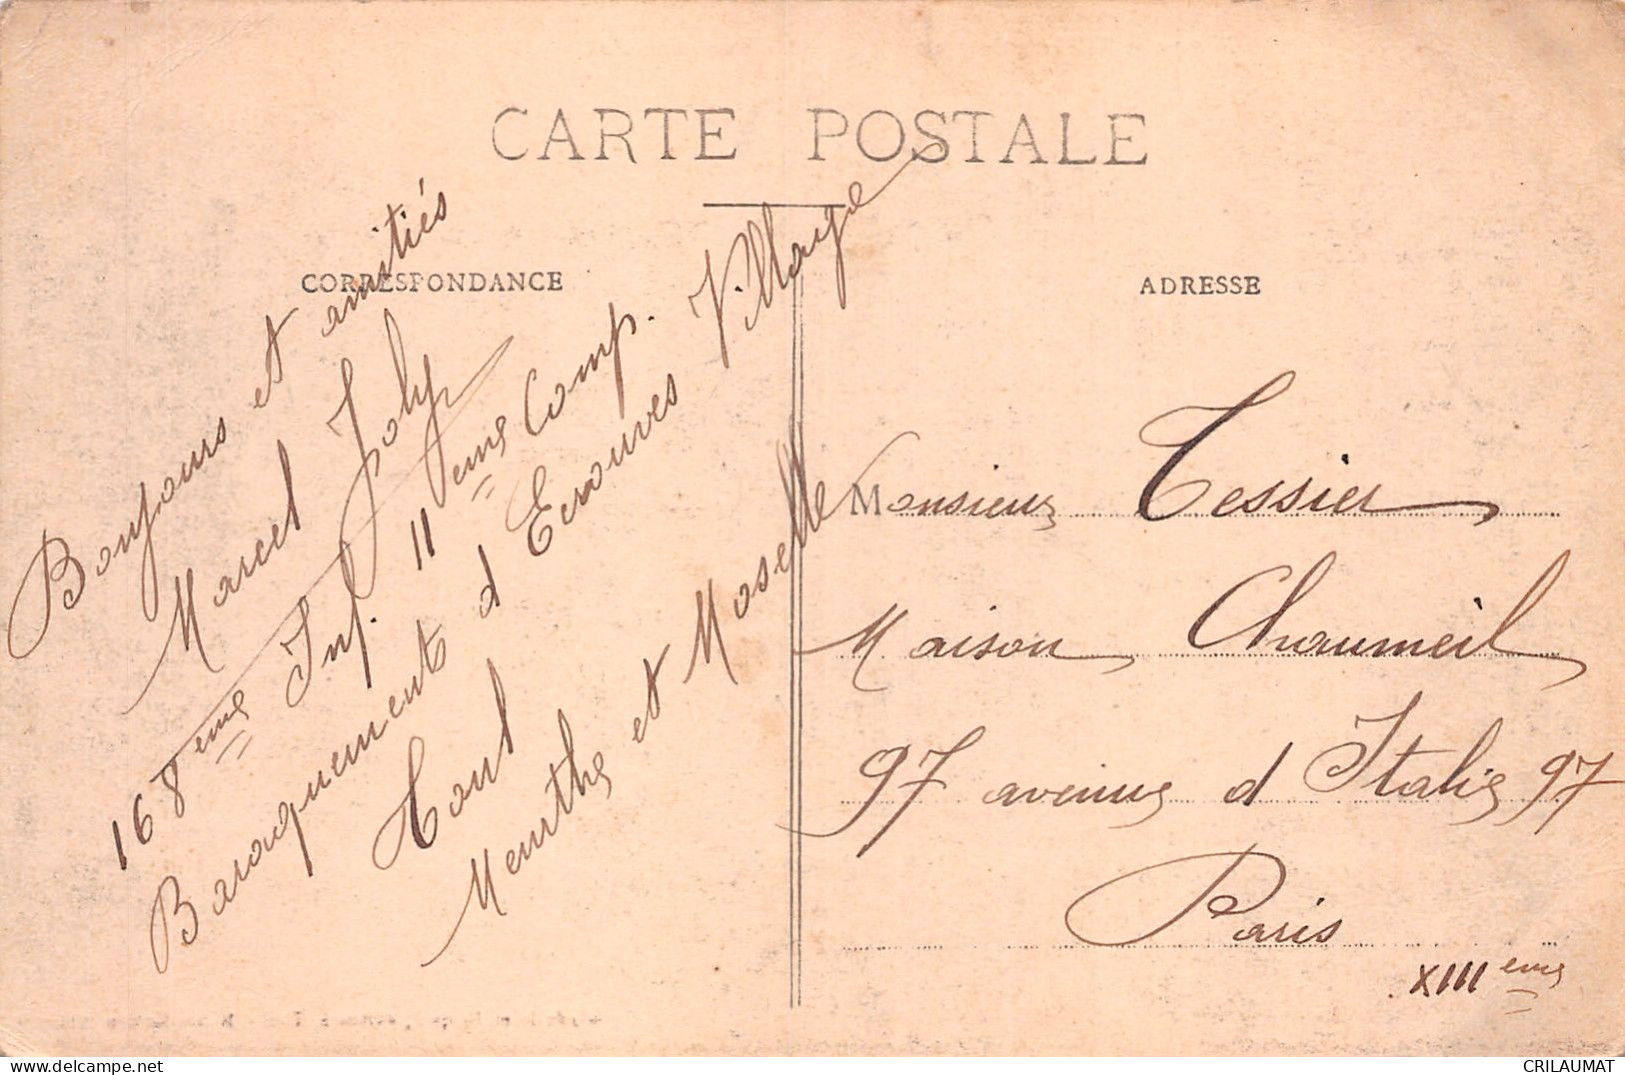 CARTE POSTALE
CORRESPONDANCE
ADRESSE
Bonjours et amitiés
Marcel Joly
168eme Inf. 11eme Comp.
Baraquements d Ecrouves Village
Toul
Meurthe et Moselle
Monsieur Tessier
Maison Chaumeil
97 avenue d Italie 97
Paris
XIIIeme
CRILAUMAT